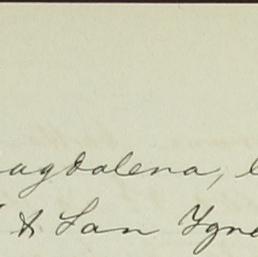 agdalena,
& San Ygn